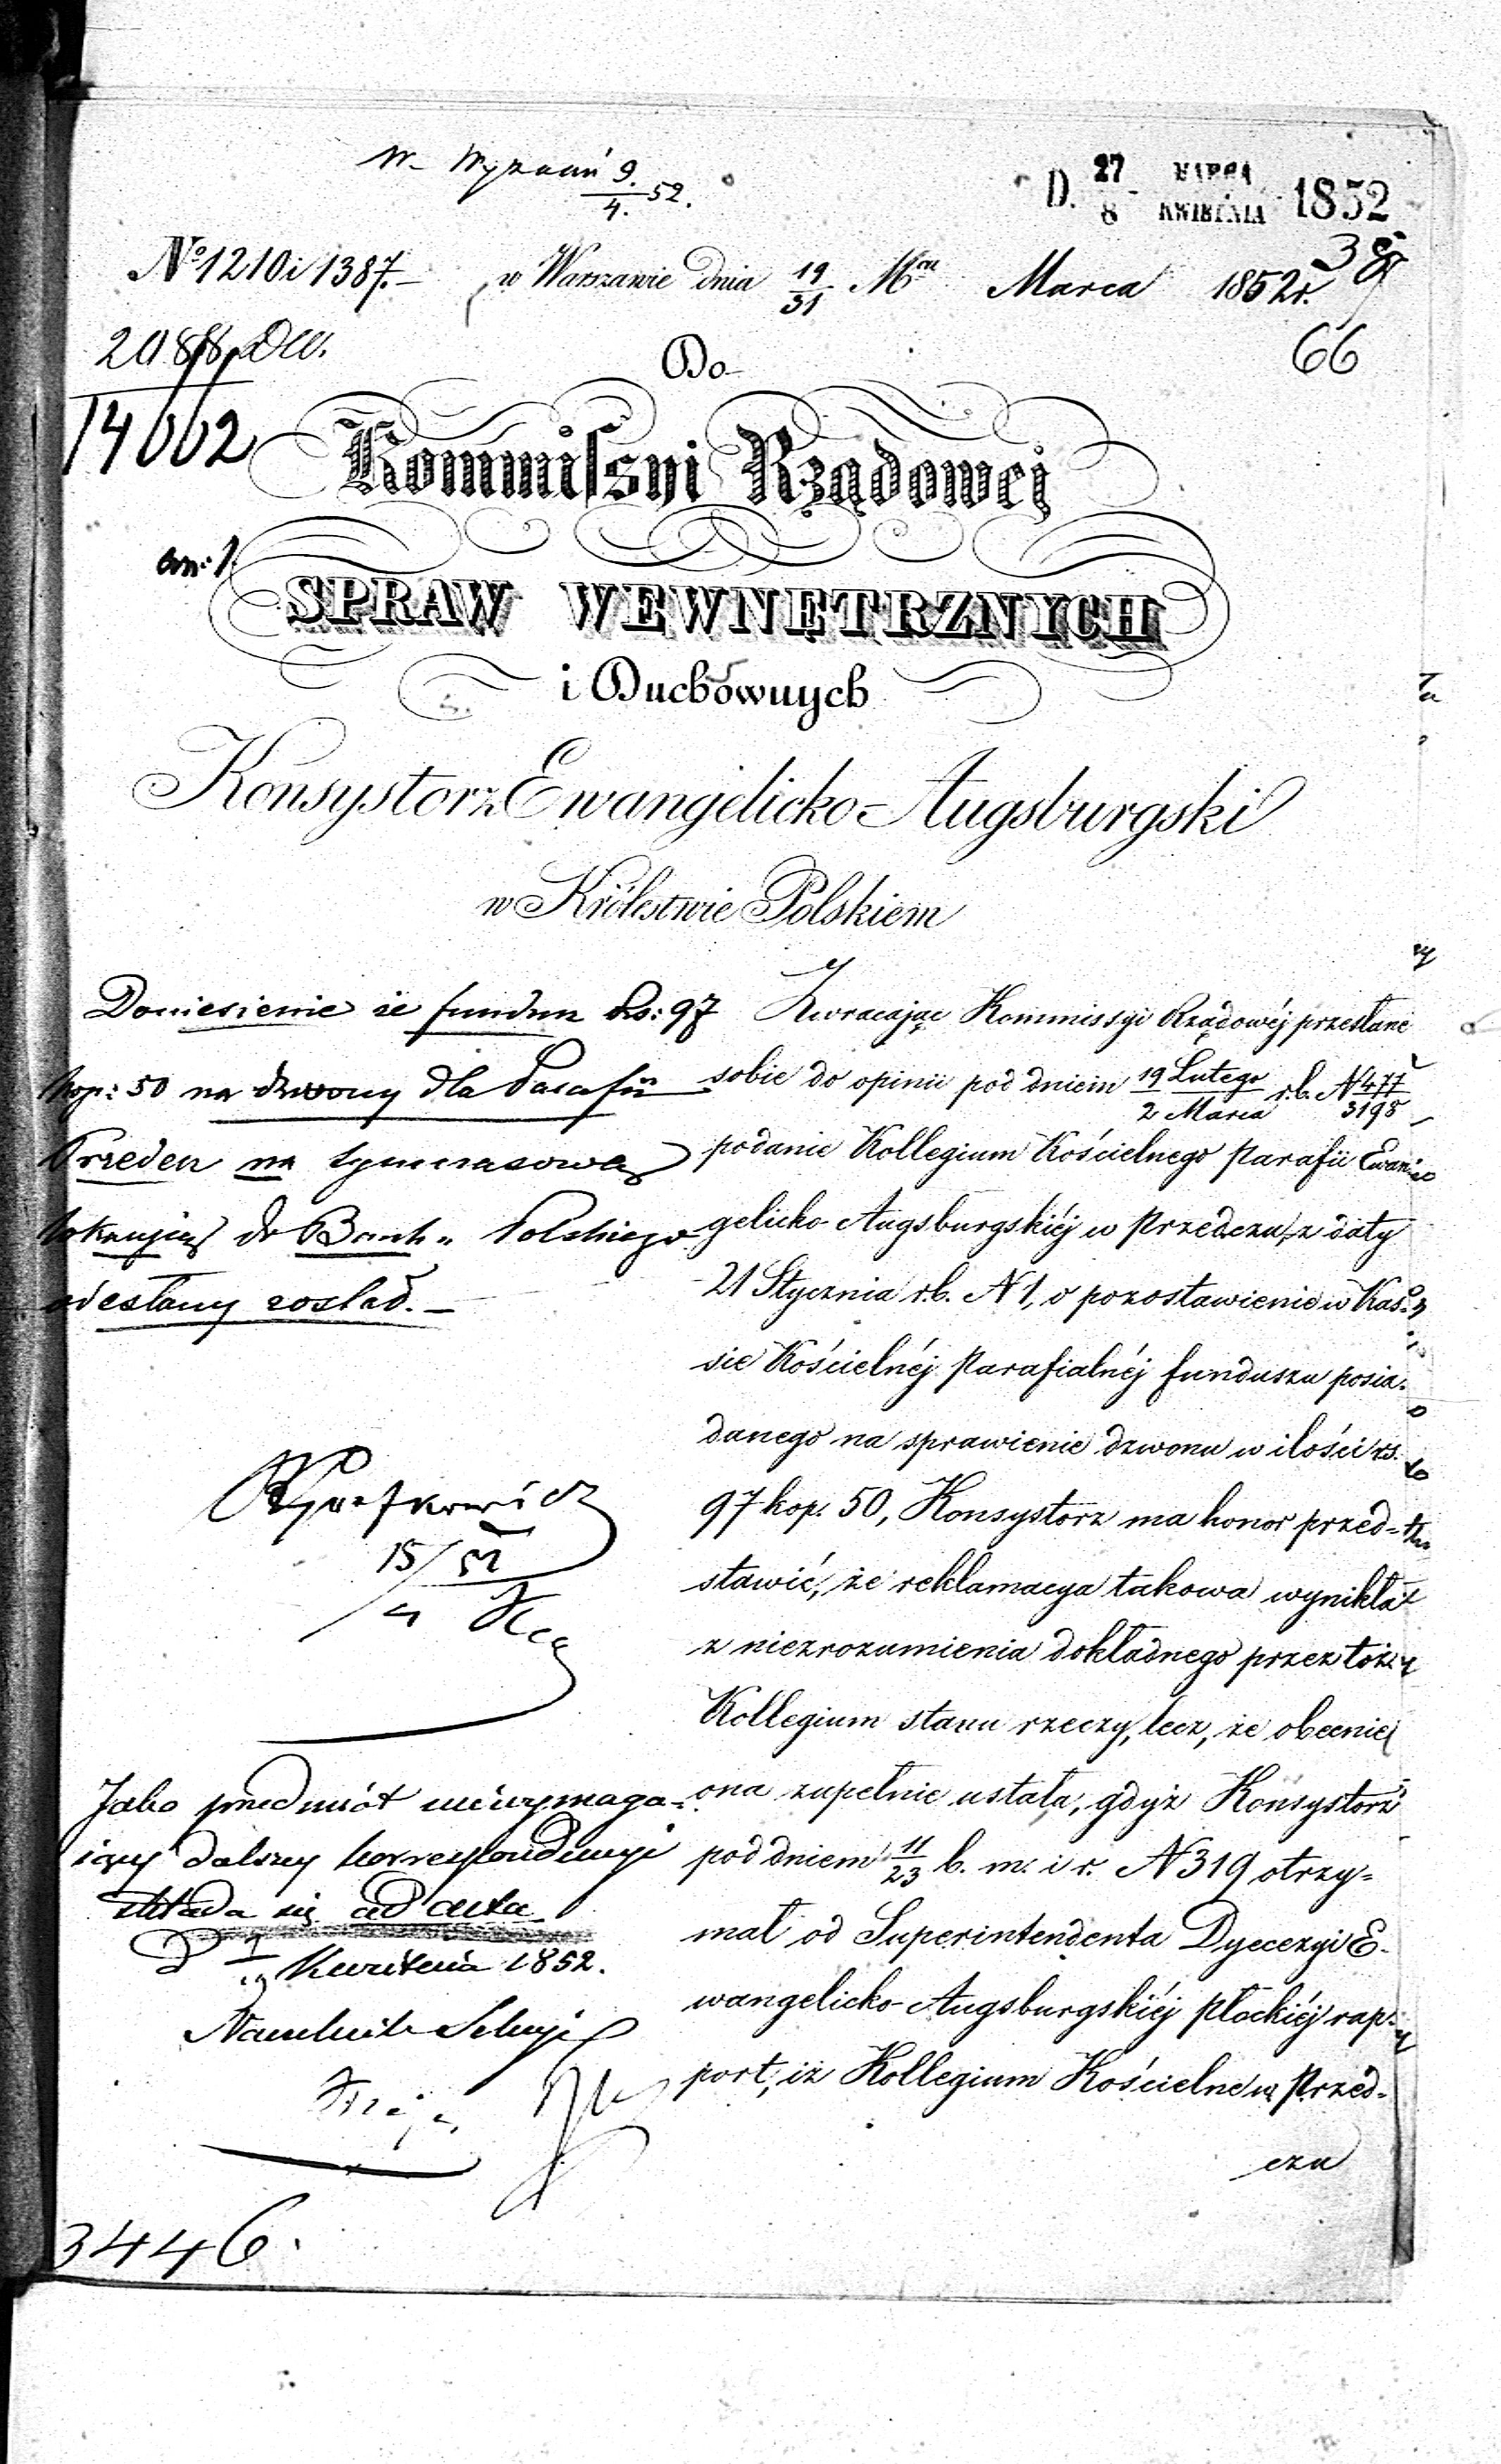 W. Wyznań 9/4. 52.
D. 27/8 MARCA/KWIETNIA 1852
38
№ 1210 i 1387.- w Warszawie dnia 19/31 Mca Marca 1852 r.
66
2088
14662
Do
Kommissyi Rządowej
an: 1.
SPRAW WEWNĘTRZNYCH
i Duchownych
Konsystorz Ewangelicko-Augsburgski
w Królestwie Polskiem
Doniesienie że fundusz Rs: 97
kop: 50 na dzwony dla Parafii
Przedecz na tymczasową
lokacyią do Banku Polskiego
odesłany został. -
Zwracając Kommissyi Rządowéj przesłane
sobie do opinii pod dniem 19 Lutego/2 Marca r.b. N 477/3198
podanie Kollegium Kościelnego Parafii Ewan-
gelicko-Augsburgskiéj w Przedczu, z daty
21 Stycznia r.b. N 1, o pozostawienie w Kas-
sie Kościelnéj Parafialnéj funduszu posia-
danego na sprawienie dzwonu w ilości rs.
97 kop. 50, Konsystorz ma honor przed-
stawić, że reklamacya takowa wynikła
z niezrozumienia dokładnego przez toż
Kollegium stanu rzeczy, lecz, że obecnie
ona zupełnie ustała, gdyż Konsystorz
pod dniem 11/23 b. m. i r. N 319 otrzy-
mał od Superintendenta Dyecezyi E-
wangelicko-Augsburgskiéj Płockiéj rap-
port, iż Kollegium Kościelne w Przed-
czu
15/4 52
Jako przedmiot niewymaga-
iący dalszey korrespondencyi
składa się ad acta
Kwietnia 1852.
Naczelnik Sekcyi
3446.